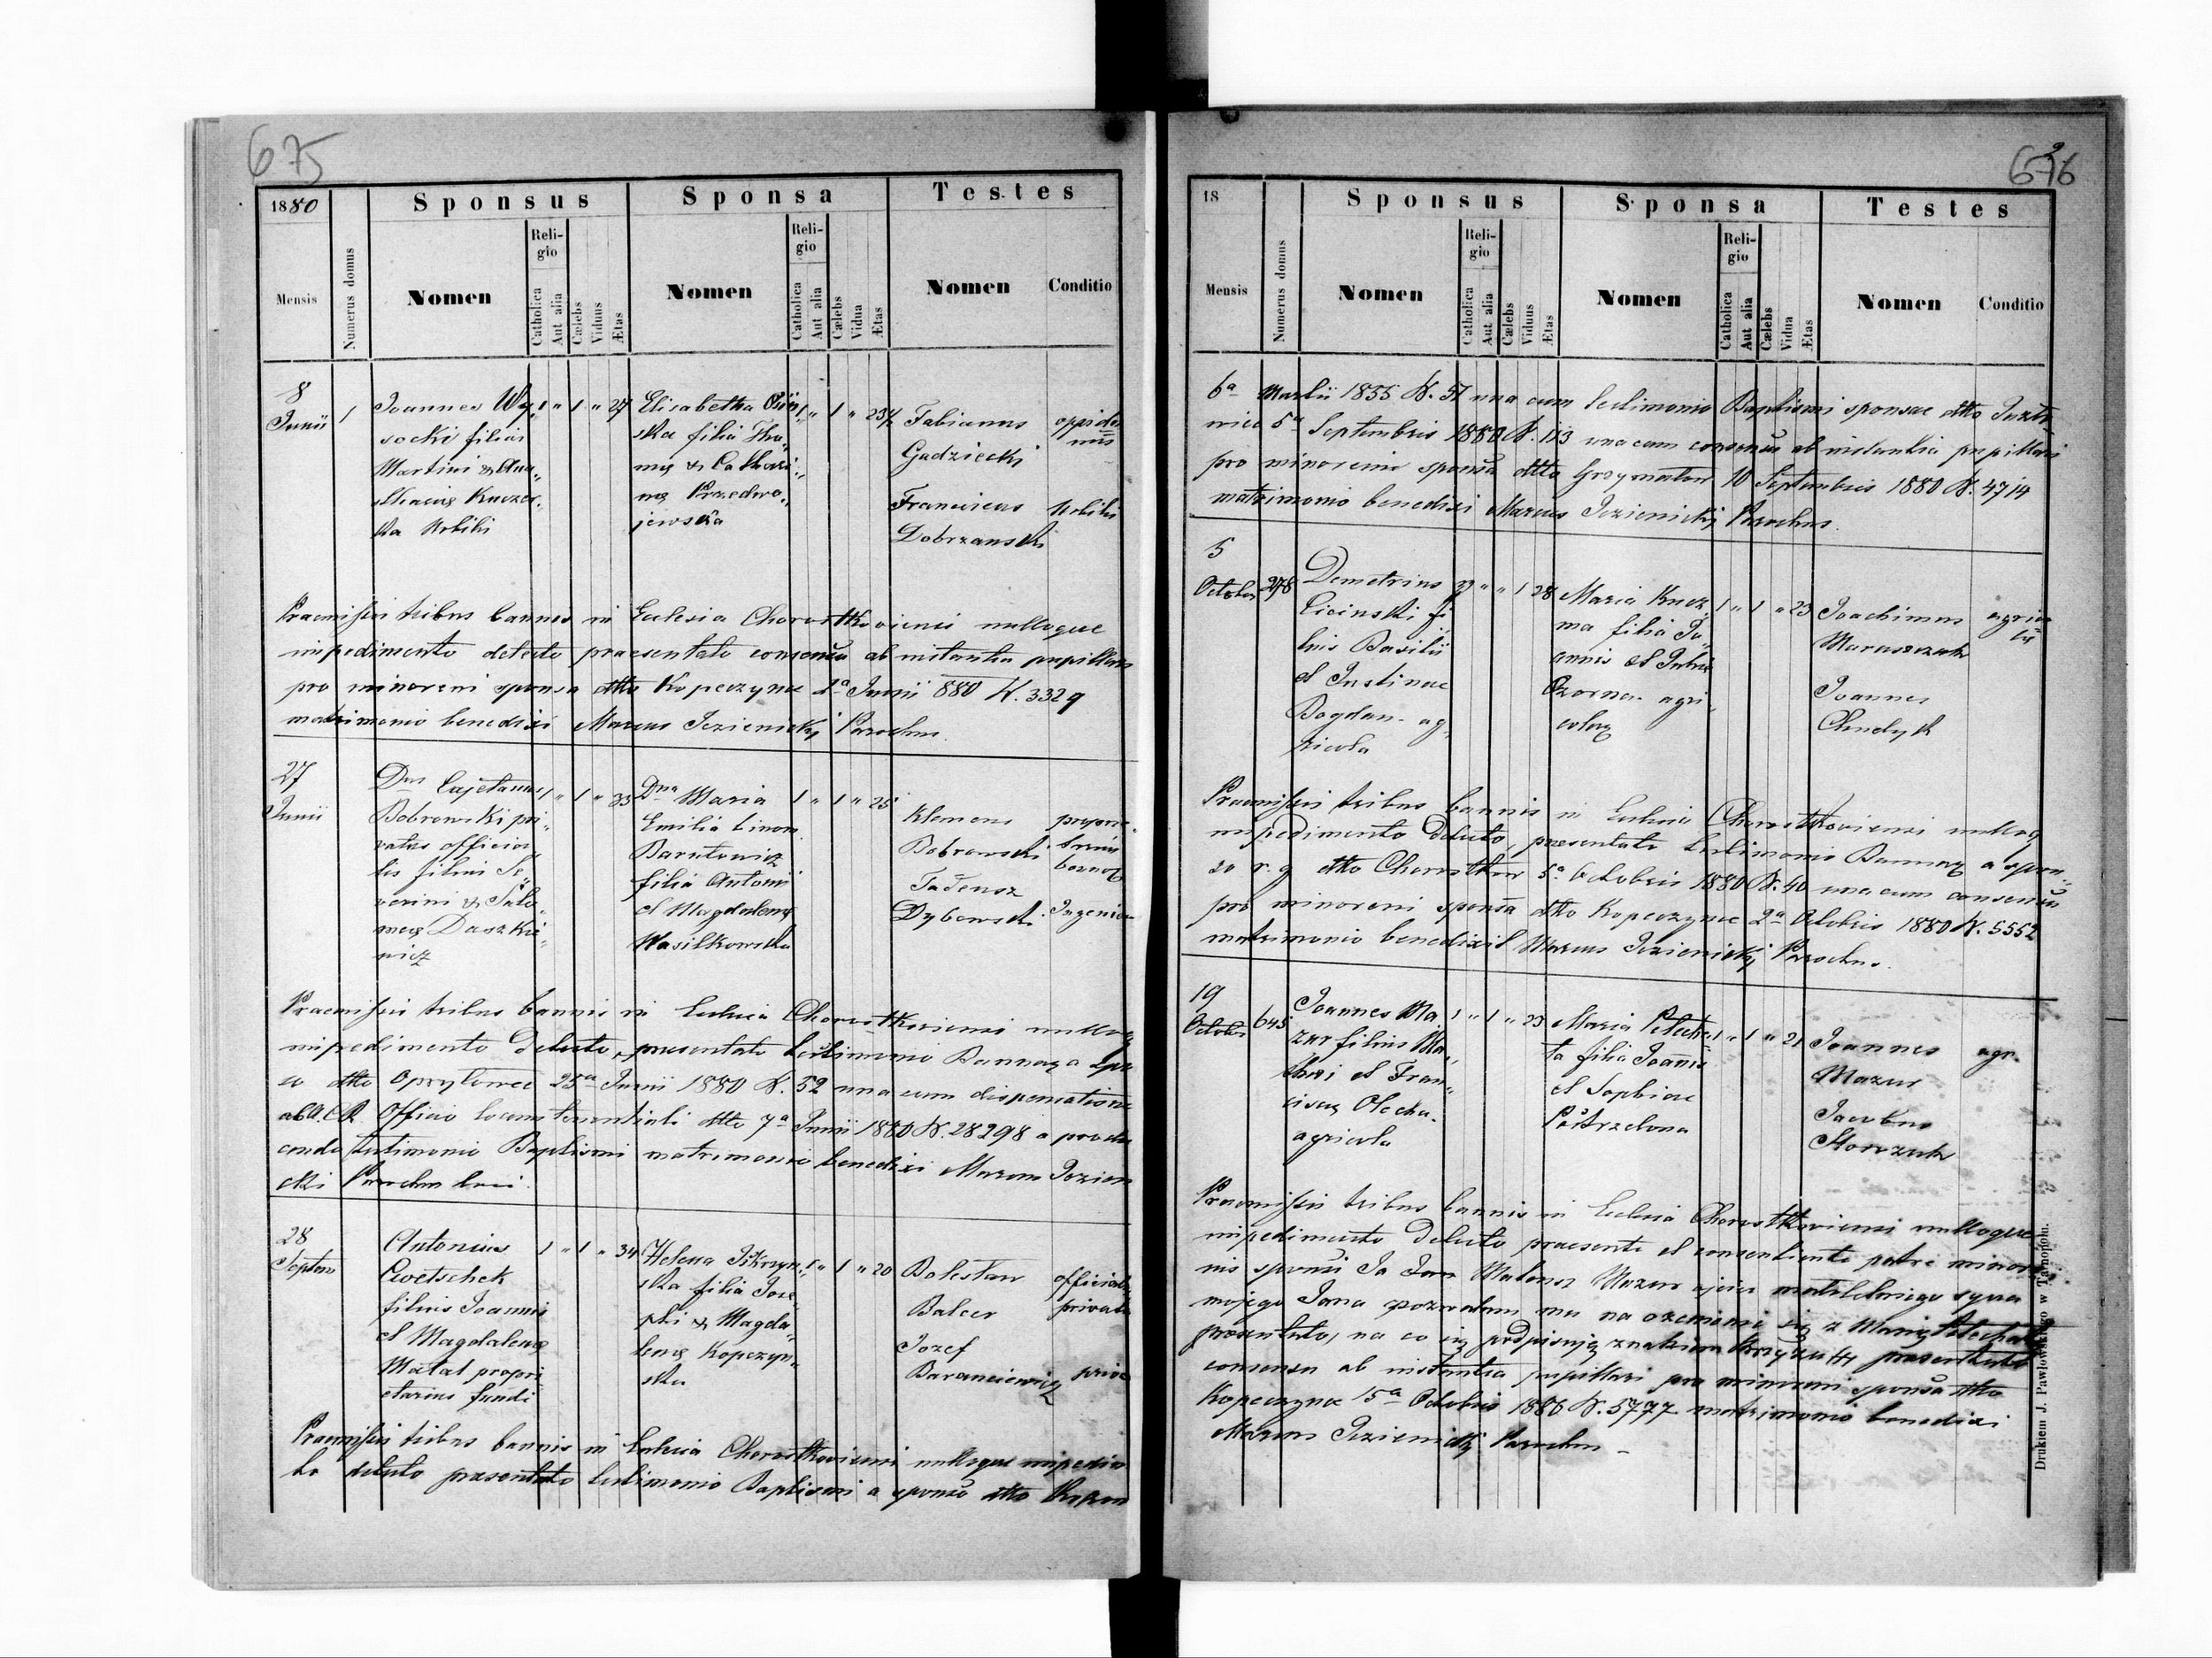 675
1880
Sponsus
Sponsa
Testes
Mensis
Numerus domus
Nomen
Religio
Catholica
Aut alia
Cælebs
Viduus
Ætas
Nomen
Religio
Catholica
Aut alia
Cælebs
Vidua
Ætas
Nomen
Conditio
8
Junii
1
Joannes Wy„
socki filius
Martini & Ana„
sthacię Kuczer„
ska Nobilis
1 „ 1 „ 27
Elisabetha
ska filia Tho„
mę & Cathari„
nę Przedwo„
jewska
1 „ 1 „ 23½
Fabianus
Gadziecki
Franciscus
Dobrzanski
oppida
nus
Nobilis
Praemissis tribus bannis in Eclesia Chorostkoviensi nulloque
impedimento detecto praesentato consensu ab instantia pupillari
pro minoreni sponsa dtto Kopeczynce 2a Junii 880 N. 3329
matrimonio benedixi Marcus Jezienicki Parochus.
27
Junii
Dnus Cajetanus
Bobrowski pri„
vatus officia„
lis filius Se„
verini & Salo„
meę Daszkie„
wicz
1 „ 1 „ 33
Dna Maria
Emilia
Barutowicz
filia Antonii
et Magdalenę
Wasilkowska
1 „ 1 „ 25
Klemens
Bobrowski
Tadeusz
Dybowski
Inzenier
Praemissis tribus bannis in Eclesia Chorostkoviensi nulloq
impedimento detecto, presentato testimonio Bannorum a spon
so dtto Opryłowce 25a Junii 1880 N. 52 una cum dispensatione
ab A. C.R. Officio locumtenentiali dtto 7a Junii 1880 N. 28298 a produ
cendo testimonio Baptismi matrimonio benedixi Marcus Jezieni
cki Parochus loci.
28
Septem
Antonius
Cwetschek
filius Joannis
et Magdalenę
Matal propri
etarius fundi
1 „ 1 „ 34
Helena Iskrzyn„
ska filia Jose„
phi & Magda„
lenę Kopczyn„
ska
1 „ 1 „ 20
Bolesław
Balcer
Jozef
Baranciewicz
officialis
privatus
priva
Praemissis tribus bannis in Eclesia Chorostkoviensi nulloque impedimen
to detecto presentato testimonio Baptismi a sponso dtto
676
18
Sponsus
Sponsa
Testes
Mensis
Numerus domus
Nomen
Religio
Catholica
Aut alia
Cælebs
Viduus
Ætas
Nomen
Religio
Catholica
Aut alia
Cælebs
Vidua
Ætas
Nomen
Conditio
6a Martii 1855 N. 51 una cum testimonio Baptismi sponsae dtto
5a Septembris 1880 N. 113 una cum consensu ab instantia pupillari
pro minoreni sponsa dtto Grzymałow 10 Septembris 1880 N. 4714
matrimonio benedixi Marcus Jezienicki Parochus.
5
October
278
Demetrius
Cicinski fi„
lius Basilii
et Justinae
Bogdan - ag„
ricola
„ „ 1 28
Maria Kucz„
ma filia Jo„
annis et
Czorna - agri„
colaę
1 „ 1 „ 23
Joachimus
Maruszczak
Joannes
Chudyk
agrico
læ
Praemissis tribus bannis in Eclesia Chorostkoviensi nulloq
impedimento detecto, praesentato testimonio Bannorum a spon„
so r. g dtto Chorostkow 5a Octobris 1880 N. 40 una cum consensu
pro minoreni sponsa dtto Kopeczynce 2a Octobris 1880 N. 5552
matrimonio benedixit Marcus Jezienicki Parochus.
19
October
645
Joannes Ma„
zur filius Ma„
thei et Fran„
ciscę Olecha.
agricola
1 „ 1 „ 23
Maria Petecha„
ta filia Joannis
et Sophiae
Postrzelona
1 „ 1 „ 21
Joannes
Mazur
Jacobus
Storczuk
agr.
Praemissis tribus bannis in Eclesia Chorostkoviensi nulloque
impedimento detecto praesente et consentiente patre minore„
nis sponsi Ja Jan Mateusz Mazur ojciec małoletniego syna
mojego Jana pozwalam mu na ozenienie się z Marią Petechata
presentato, na co się podpisuję znakiem krzyza ++ presentato
consensu ab instantia pupillari pro minoreni sponsa dtto
Kopeczynce 15a Octobris 1880 N. 5777 matrimonio benedixi
Marcus Jezienicki Parochus -
Drukiem J. Pawłowskiego w Tarnopolu.